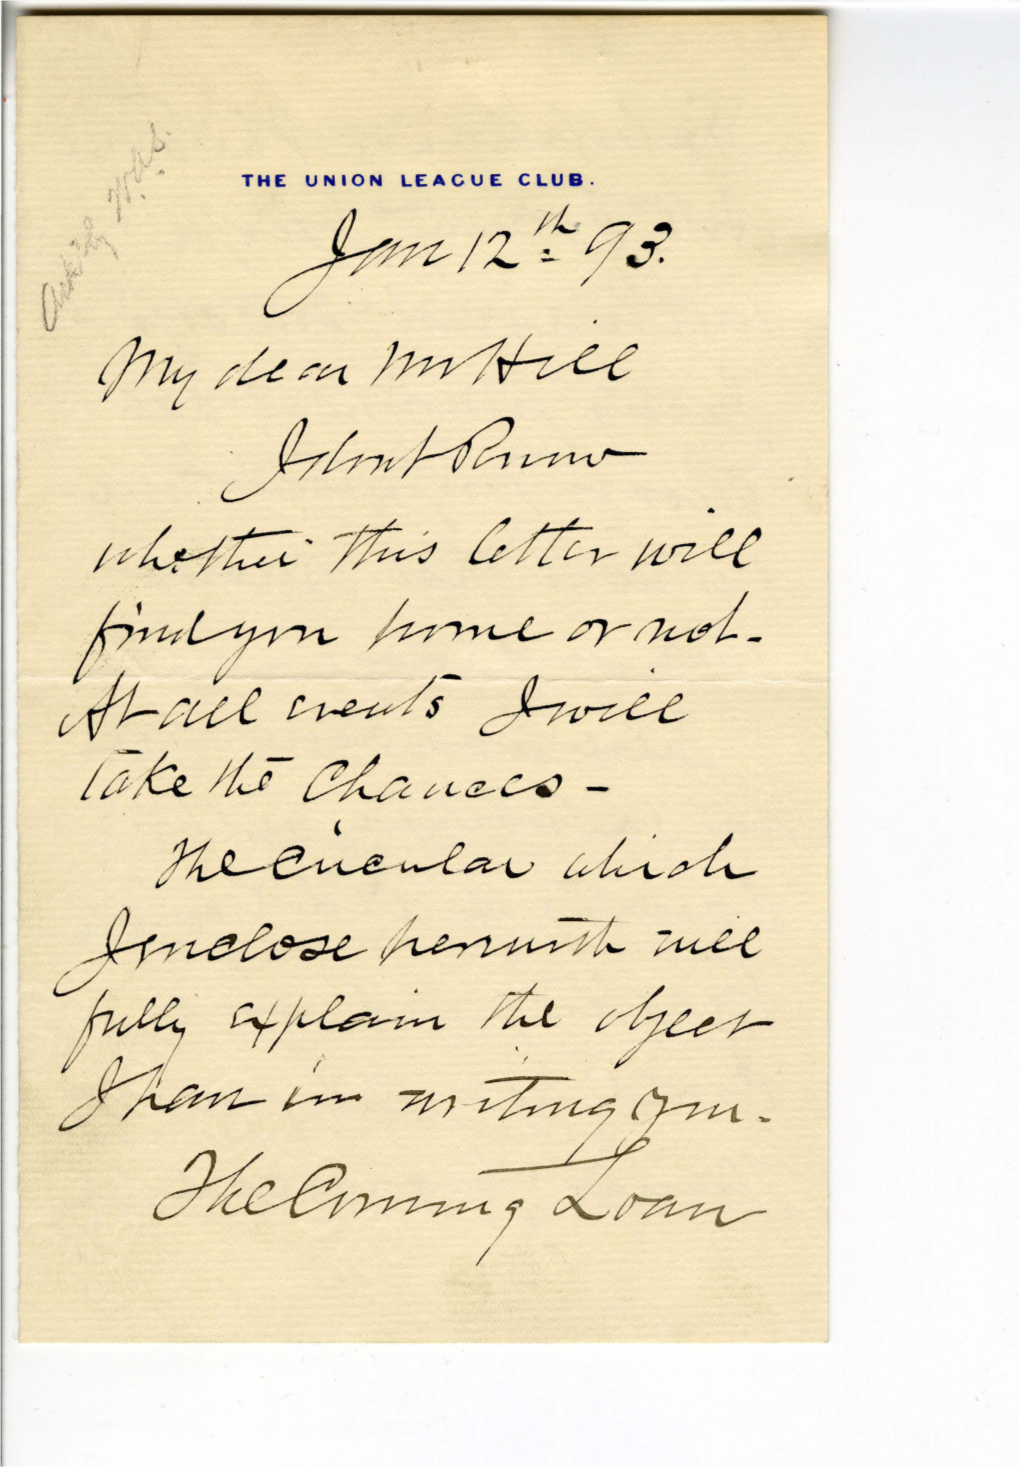 THE UNION LEAGUE CLUB.
Jan 12th 93.
My dear Mr Hill
I dont Know
whether this letter will
find you home or not-
At all events I will
take the Chances-
The circular which
I enclose herewith will
fully explain the object
I have in writing you.
The Coming Loan